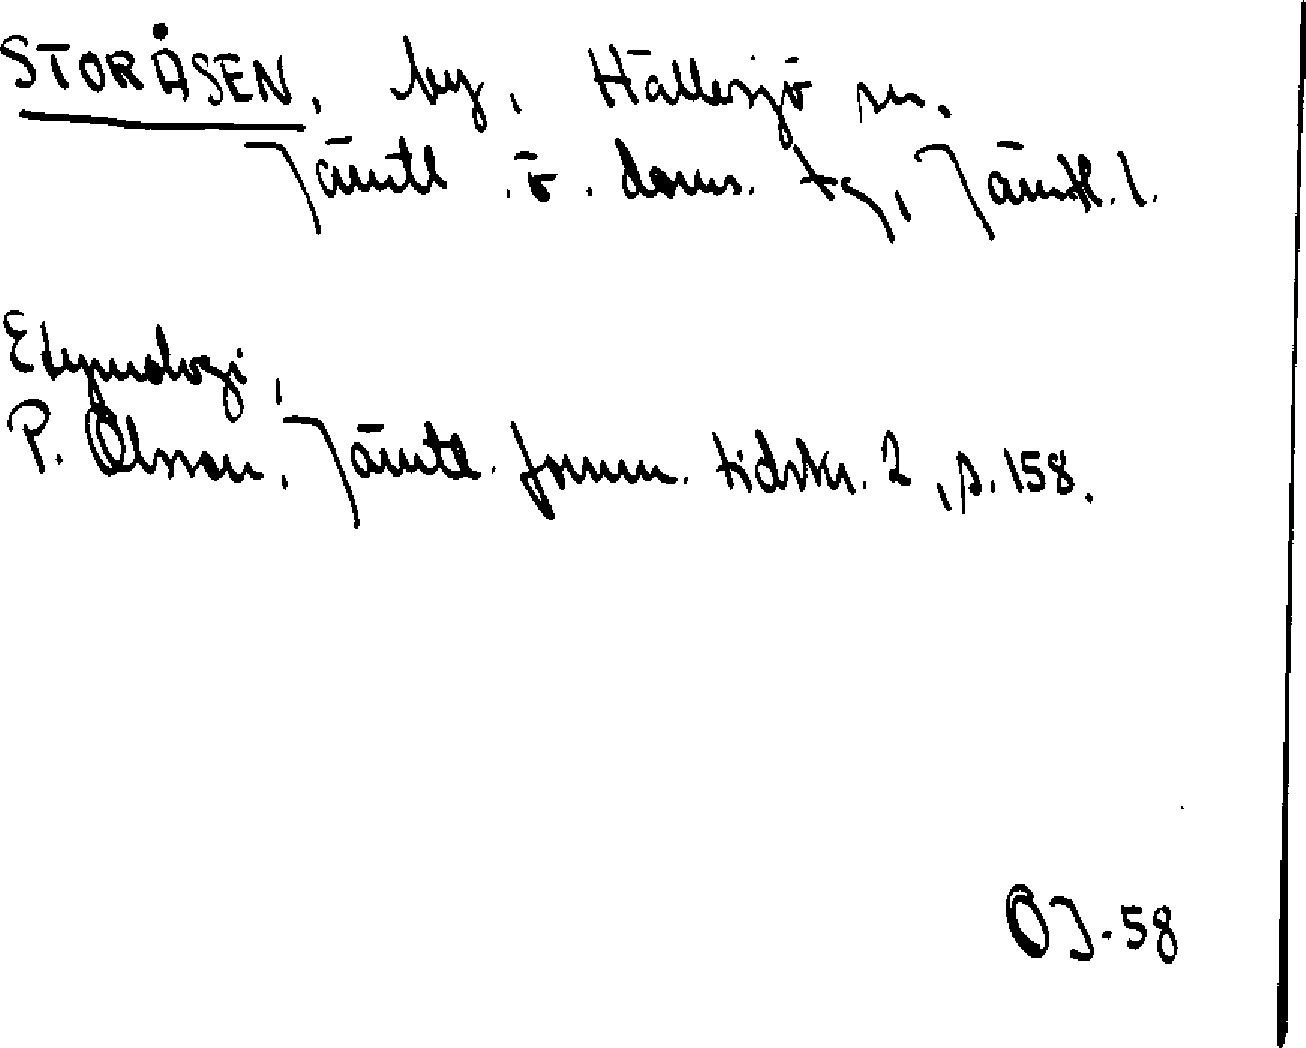 STORÅSEN, by, Hällesjö sn.
Jämtl. ö. doms. tg, Jämtl. l.
Etymologi,
P. Olsson, Jämtl. fornm. tidskr. 2, s. 158.
OJ-58